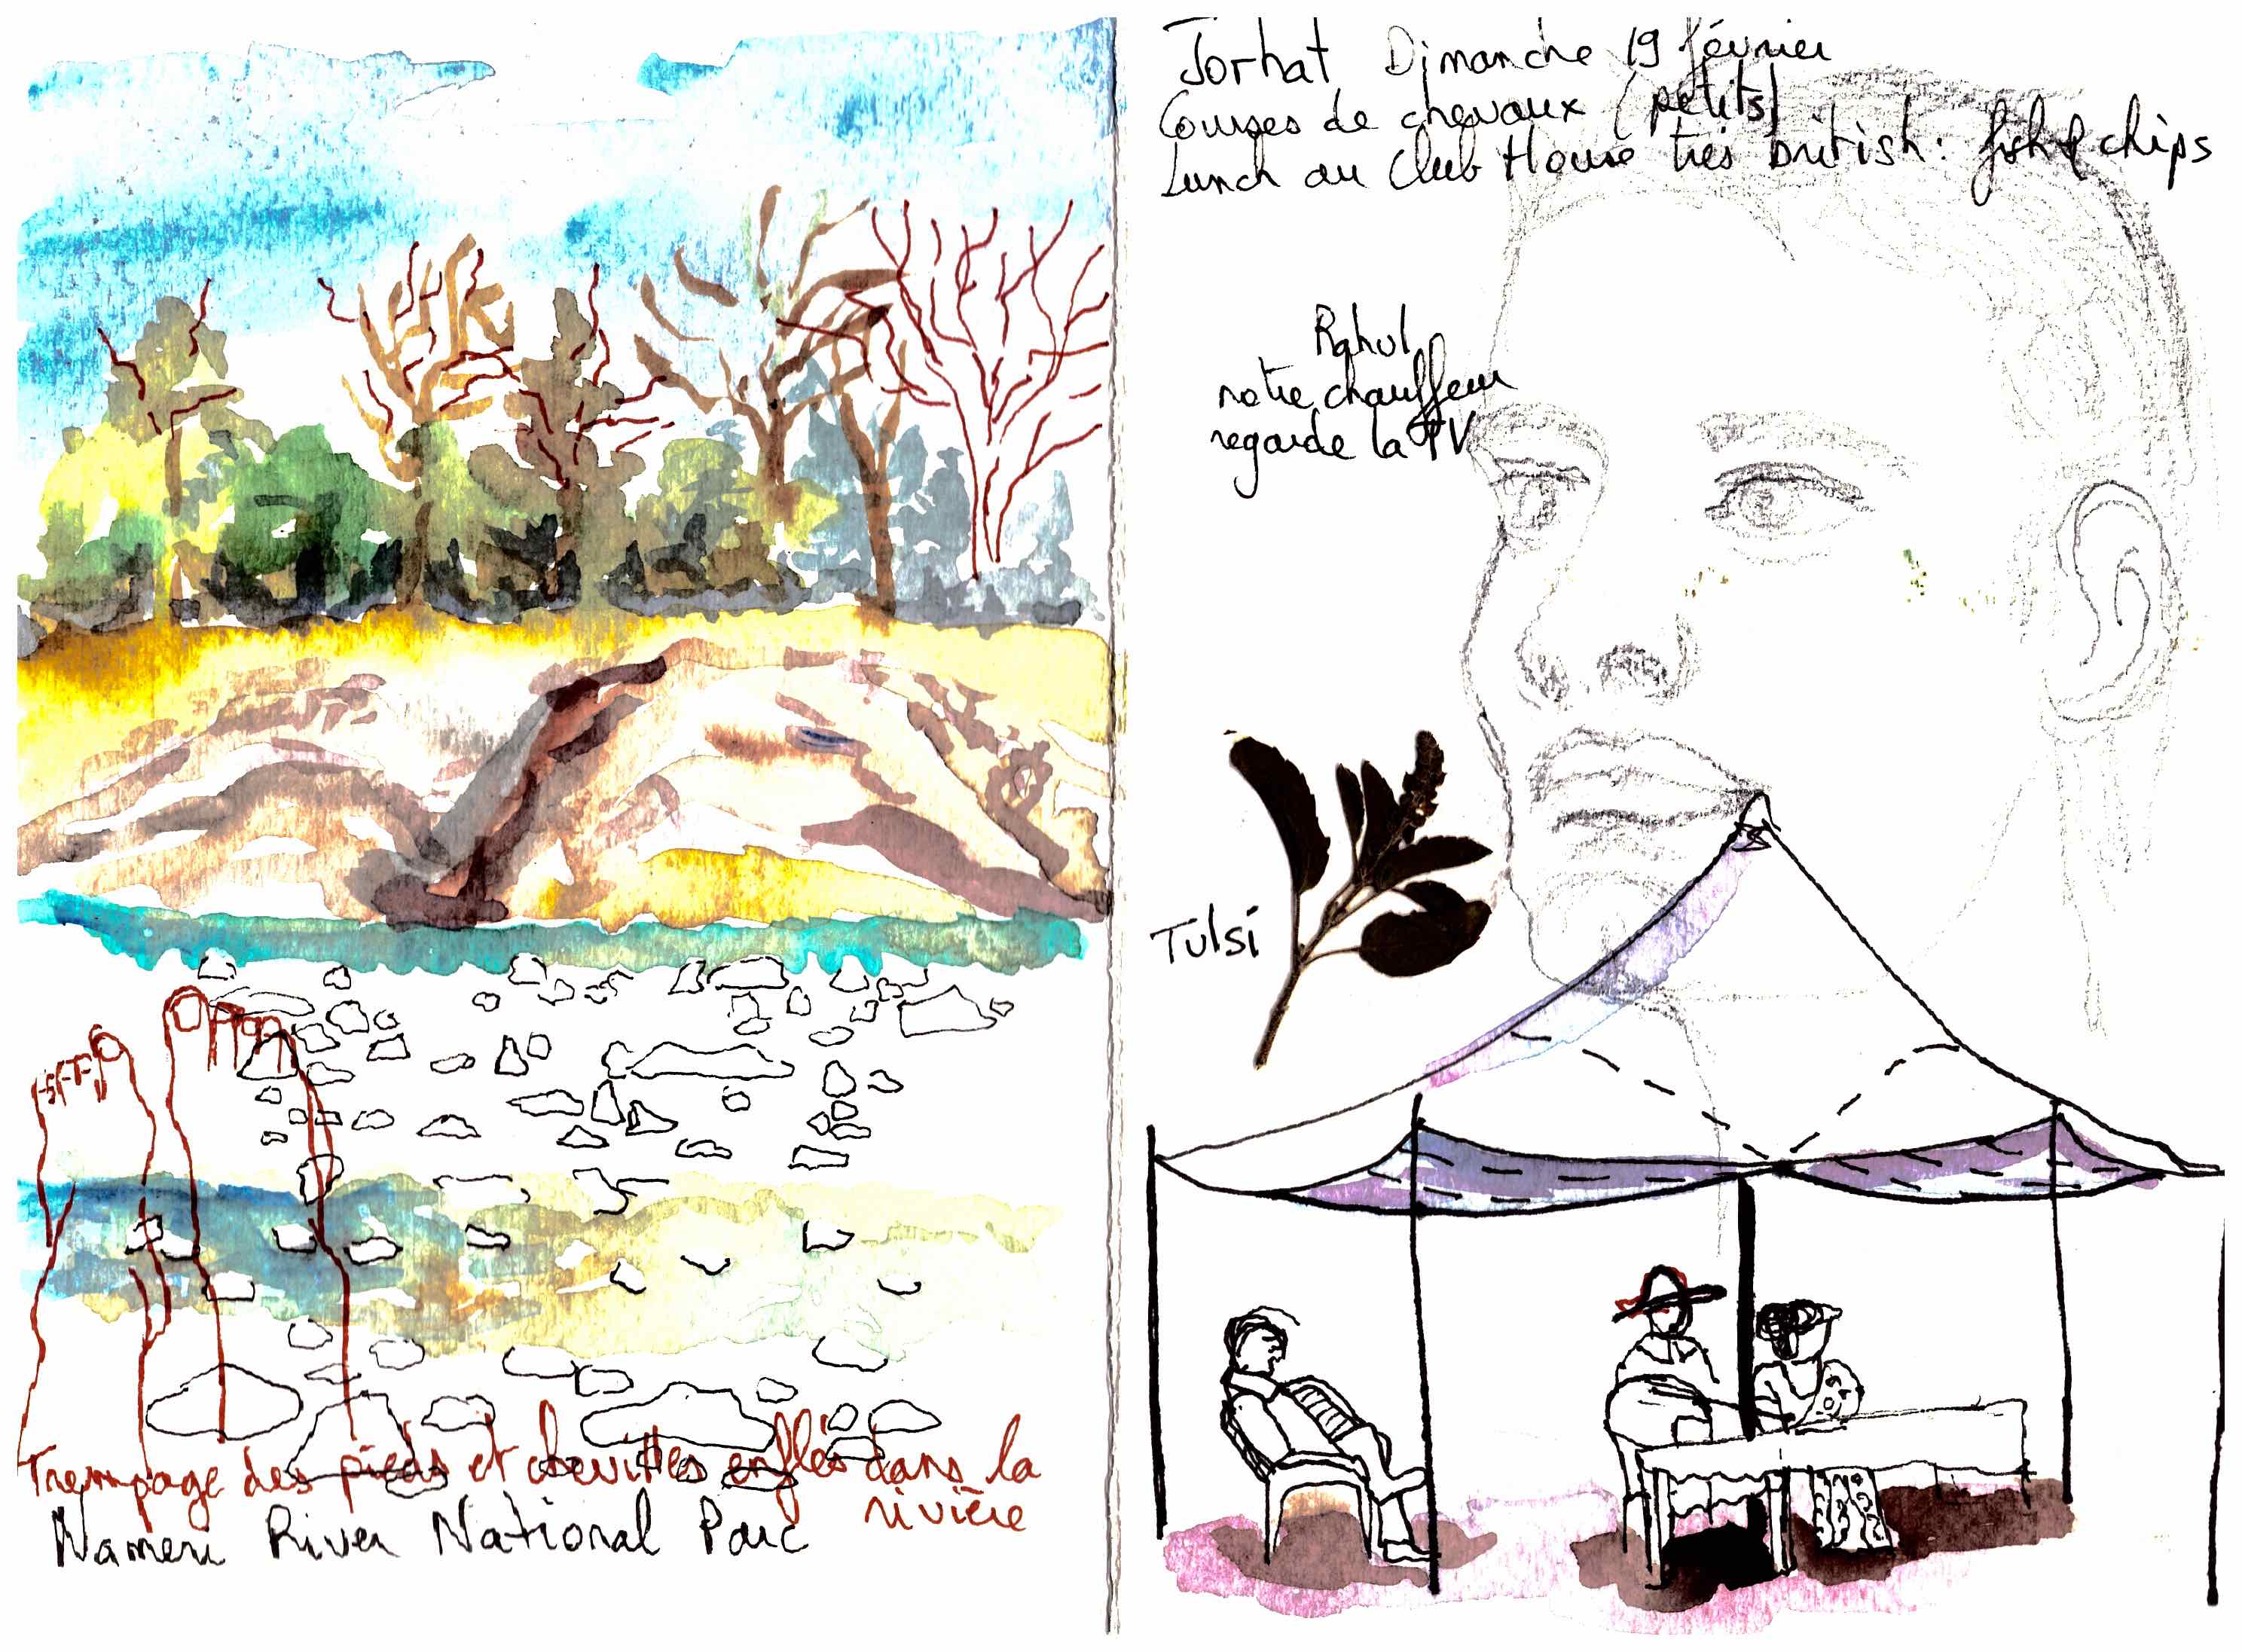 Trempage des pieds et chevilles enflés dans la
rivière
Nameri River National Parc
Jorhat Dimanche 19 février
Courses de chevaux (petits)
Lunch au Club House très british: fish & chips
Rahul
notre chauffeur
regarde la TV
Tulsi